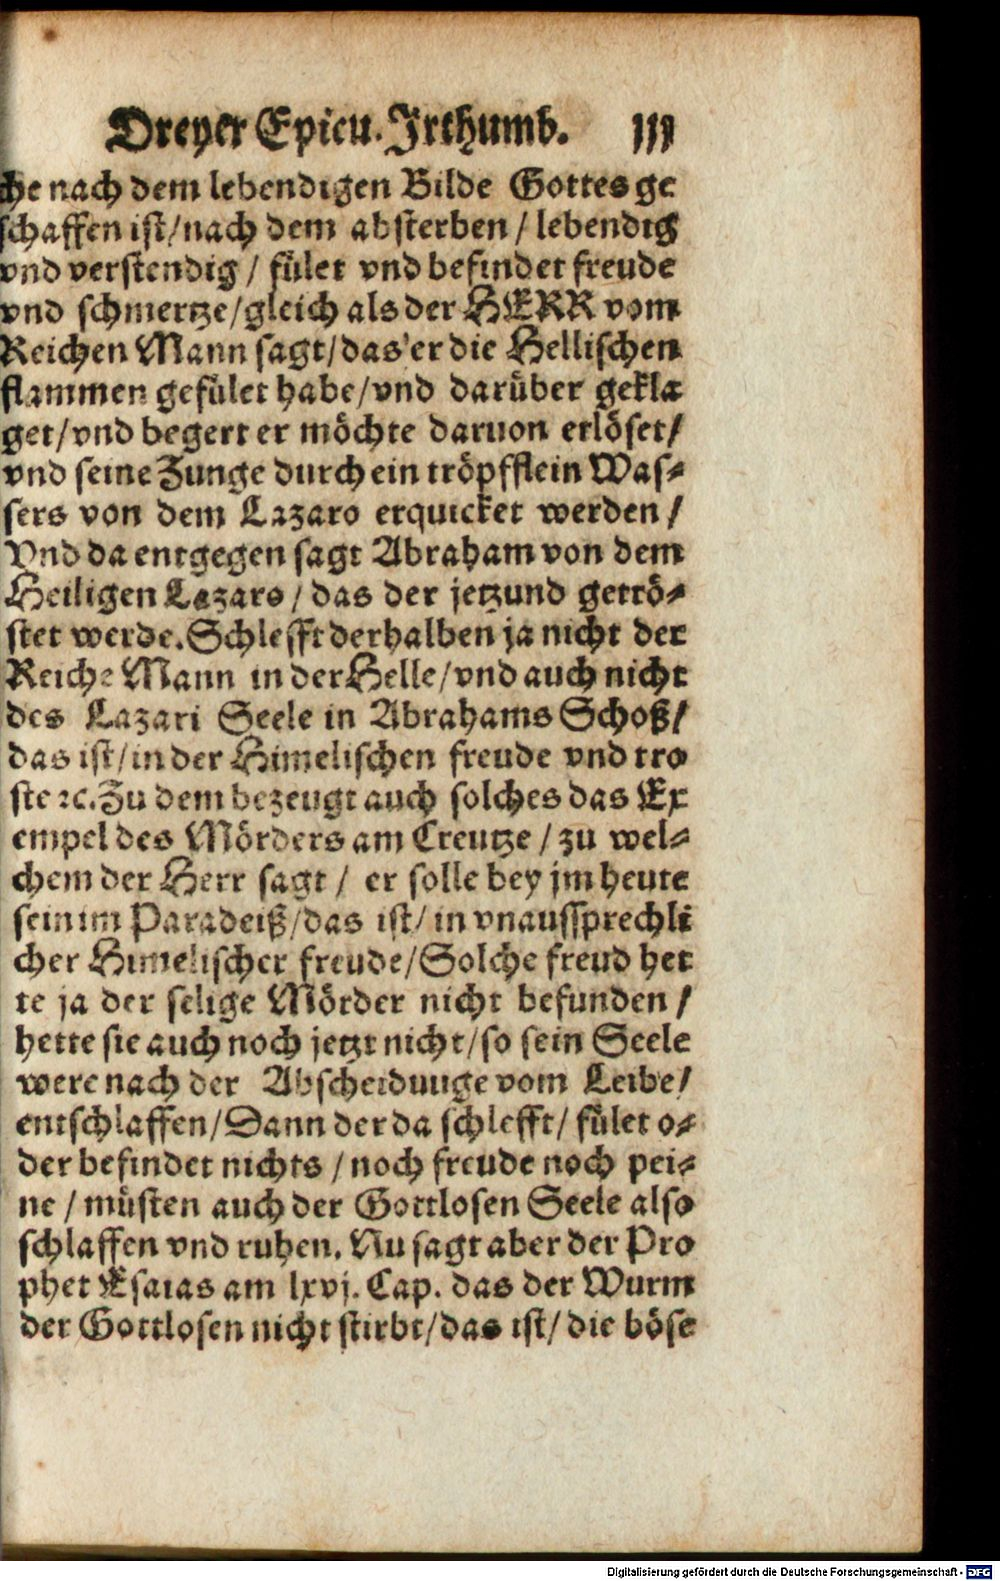 Dreyer Epicu. Jrthumb. 111
che nach dem lebendigen Bilde Gottes ge
schaffen ist/nach dem absterben / lebendig
vnd verstendig / fület vnd befindet freude
vnd schmertze/gleich als der HERR vom
Reichen Mann sagt/das er die Hellischen
flammen gefület habe/vnd darüber gekla
get/vnd begert er möchte daruon erlöset/
vnd seine Zunge durch ein tröpfflein Was-
sers von dem Lazaro erquicket werden /
Vnd da entgegen sagt Abraham von dem
Heiligen Lazaro / das der jetzund getrö-
stet werde. Schlefft derhalben ja nicht der
Reiche Mann in der Helle/vnd auch nicht
des Lazari Seele in Abrahams Schoß/
das ist/in der Himelischen freude vnd tro
ste ꝛc. Zu dem bezeugt auch solches das Ex
empel des Mörders am Creutze / zu wel-
chem der Herr sagt / er solle bey jm heute
sein im Paradeiß/das ist/ in vnaussprechli
cher Himelischer freude/Solche freud het
te ja der selige Mörder nicht befunden /
hette sie auch noch jetzt nicht/so sein Seele
were nach der Abscheidunge vom Leibe/
entschlaffen/Dann der da schlefft/ fület o-
der befindet nichts / noch freude noch pei-
ne / müsten auch der Gottlosen Seele also
schlaffen vnd ruhen. Nu sagt aber der Pro
phet Esaias am lxvj. Cap. das der Wurm
der Gottlosen nicht stirbt/das ist/ die böse
Digitalisierung gefördert durch die Deutsche Forschungsgemeinschaft - DFG